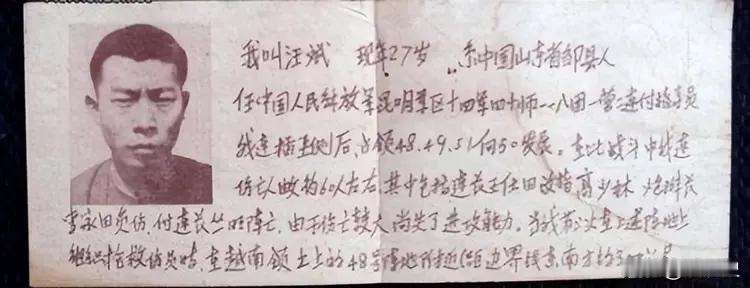 我叫汪斌 现年27岁 系中国山东省邹县人
任中国人民解放军昆明军区十四军四十师一一八团一营二连付指导员
我连插至侧后、占领48.49.51向50发展。在此战斗中我连
伤亡人数约60人左右,其中包括连长王任田 政指高少林 炮排长
李家田负伤,付连长丛明阵亡,由于伤亡较大尚失了进攻能力。当我
组织抢救伤员时,在越南领土上的48号阵地附近(距边界线东南方约